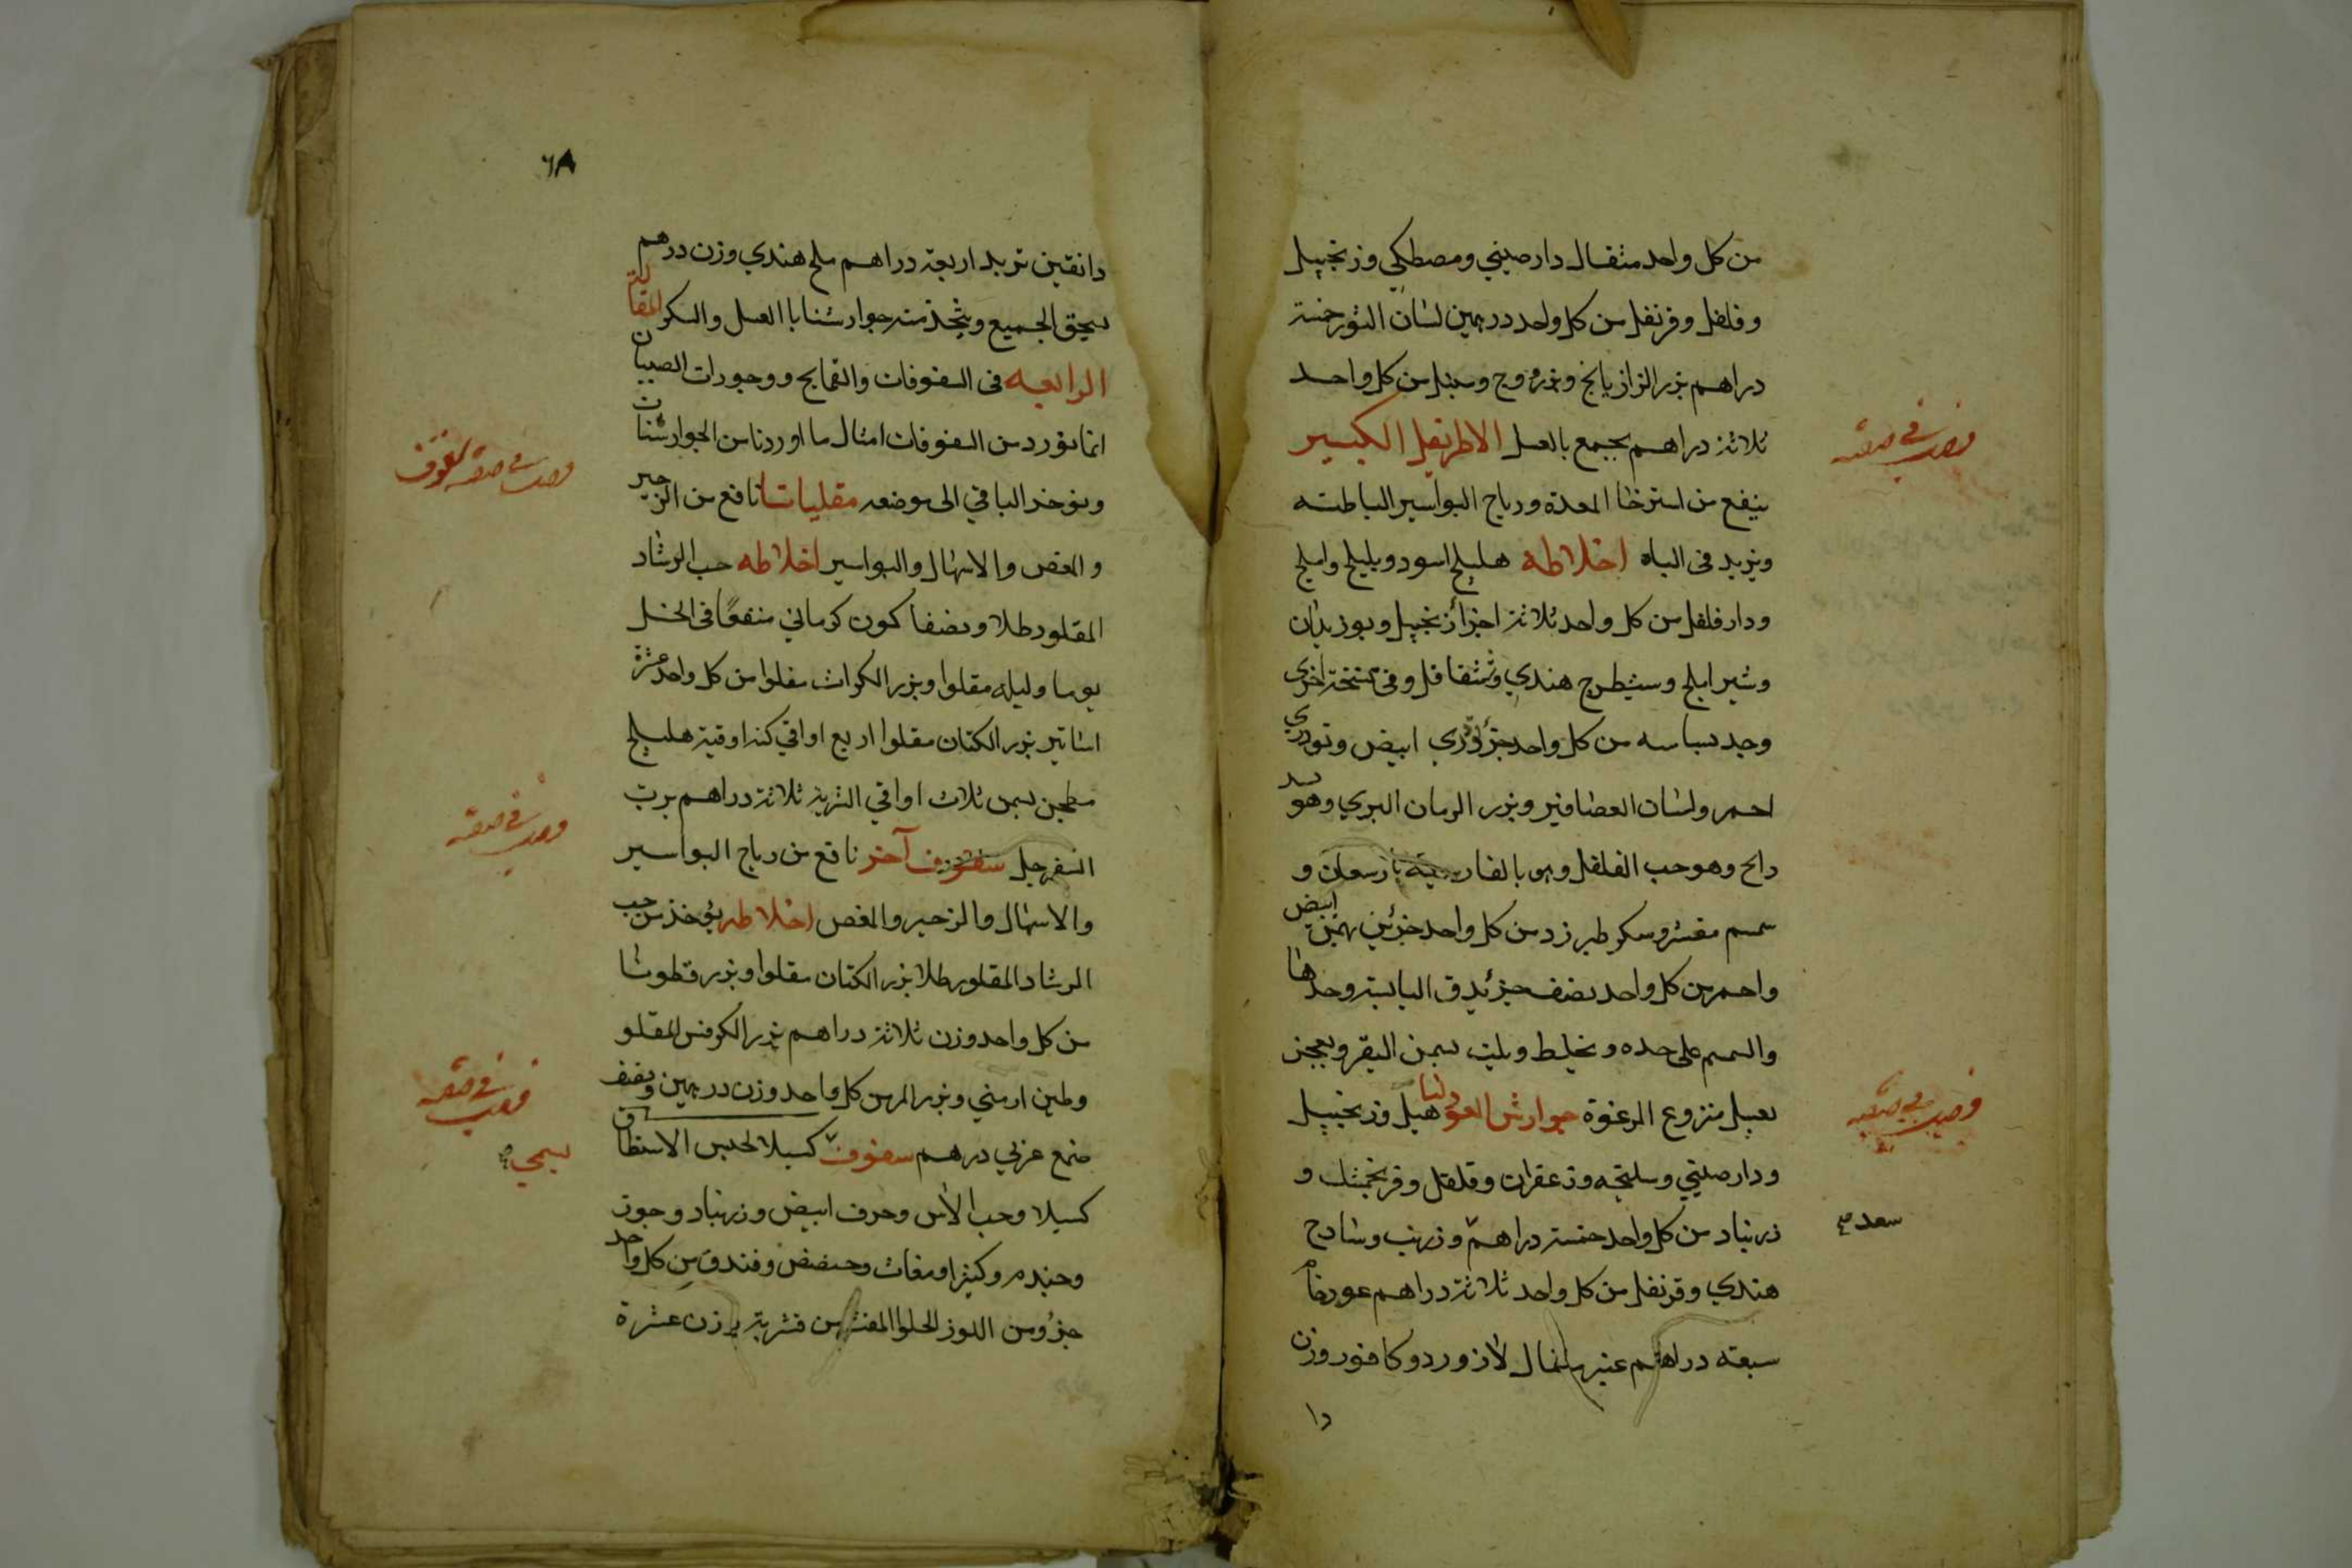 من كل واحد مثقال دارصيني ومصطكي وزنجبيل
وفلفل وقرنفل من كل واحد درهمين لسان الثور خمسة
دراهم بزر الرازيانج وسنبل من كل واحد
ثلاثة دراهم يجمع بالعسل الاطريفل الكبير
فصل في صفة
ينفع من استرخا المعدة ورياح البواسير الباطنه
ويزيد في الباه اخلاطه هليلج اسود وبليلج واملج
ودارفلفل من كل واحد ثلاثة اجزأ زنجبيل وبوزيدان
وشير املج وشيطرج هندي وشقاقل وفي نسخة اخرى
وجد بسباسه من كل واحد جزؤ تودري ابيض وتودري
احمر ولسان العصافير وبزر الرمان البري وهو
وهو حب الفلفل وهو بالفارسية و
سمسم مقشر وسكر طبرزد من كل واحد جزئين بهمن ابيض
واحمر من كل واحد نصف جزء يدق اليابسة وحدها
والسمسم على حده ويخلط ويلت بسمن البقر ويعجن
بعسل منزوع الرغوة جوارش العود لنا هيل وزنجبيل
فصل في صفة
ودارصيني وسليخه وزعفران وفلفل وفرنجمشك و
زرنباد من كل واحد خمسة دراهم وزرنب وسادج
سعد صح
هندي وقرنفل من كل واحد ثلاثة دراهم عود خام
سبعة دراهم عنبر مثقال لازورد وكافور وزن
دا
٦٨
دانقين تربد اربعة دراهم ملح هندي وزن درهم
يسحق الجميع ويتخذ منه جوارشنا بالعسل والسكر المقالة
الرابعه في السفوفات والقمايح ووجورات الصبيان
انما نورد من السفوفات امثال ما اوردنا من الجوارشنات
فصل في صفة سفوف
ونوخر الباقي الى موضعه مقلياثا نافع من الزحير
والمغص والاسهال والبواسير اخلاطه حب الرشاد
المقلو رطلا ونصفا كمون كرماني منقعًا في الخل
يوما وليله مقلوا وبزر الكراث مقلوا من كل واحد عشرة
اساتير بزر الكتان مقلوا اربع اواقي كندر اوقية هليلج
مطجن بسمن ثلاث اواقي الشربة ثلاثة دراهم برب
السفرجل سفوف آخر نافع من رياح البواسير
فصل في صفة
والاسهال والزحير والمغص اخلاطه يؤخذ من حب
الرشاد المقلو رطلا بزر الكتان مقلوا وبزر قطونا
من كل واحد وزن ثلاثة دراهم بزر الكرفس المقلو
وطين ارمني وبزر المر من كل واحد وزن درهمين ونصف
فصل في صفة
صمغ عربي درهم سفوف كسيلا لحبس الاستطلاق
يسمى صح
كسيلا وحب الآس وحرف ابيض وزرنباد وجوز
وكثيرا ومغاث وحضض وفندق من كل واحد
جزؤ ومن اللوز الحلو المقشر من قشريه وزن عشرة